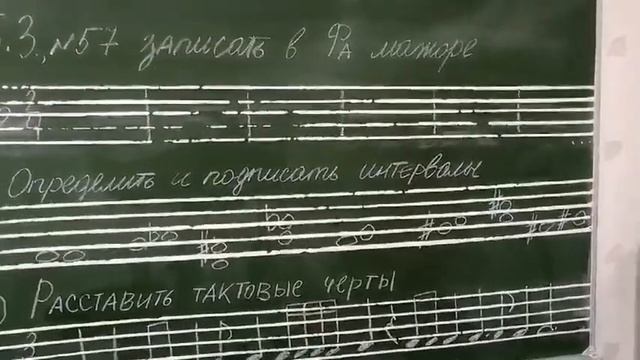 .3., №57 записать в Фа мажоре
Определить и подписать интервалы
) Расставить тактовые черты